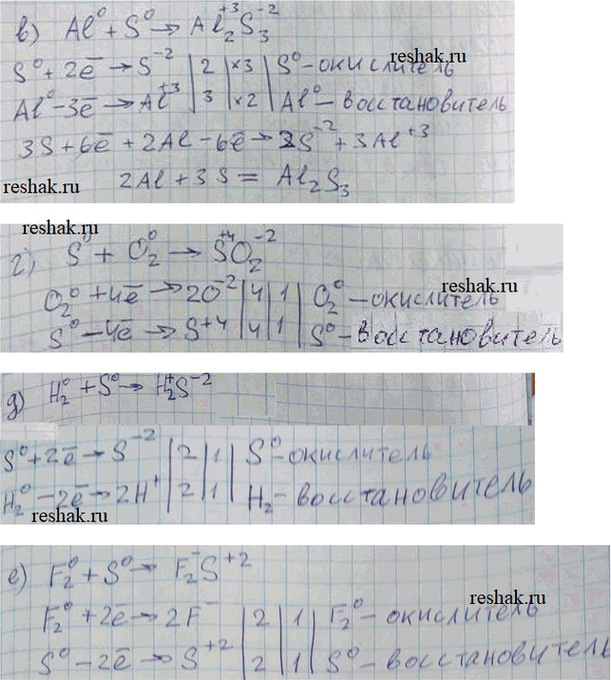 в) Al⁰ + S⁰ → Al₂⁺³S₃⁻²
reshak.ru
S⁰ + 2ē → S⁻² | 2 | ×3 | S⁰ - окислитель
Al⁰ - 3ē → Al⁺³ | 3 | ×2 | Al⁰ - восстановитель
3S + 6ē + 2Al - 6ē → 3S⁻² + 3Al⁺³
reshak.ru
2Al + 3S = Al₂S₃
reshak.ru
г) S⁰ + O₂⁰ → S⁺⁴O₂⁻²
O₂⁰ + 4ē → 2O⁻² | 4 | 1 | O₂⁰ - окислитель
S⁰ - 4ē → S⁺⁴ | 4 | 1 | S⁰ - восстановитель
reshak.ru
д) H₂⁰ + S⁰ → H₂⁺S⁻²
S⁰ + 2ē → S⁻² | 2 | 1 | S⁰ - окислитель
H₂⁰ - 2ē → 2H⁺ | 2 | 1 | H₂ - восстановитель
reshak.ru
е) F₂⁰ + S⁰ → F₂⁻S⁺²
reshak.ru
F₂⁰ + 2ē → 2F⁻ | 2 | 1 | F₂⁰ - окислитель
S⁰ - 2ē → S⁺² | 2 | 1 | S⁰ - восстановитель